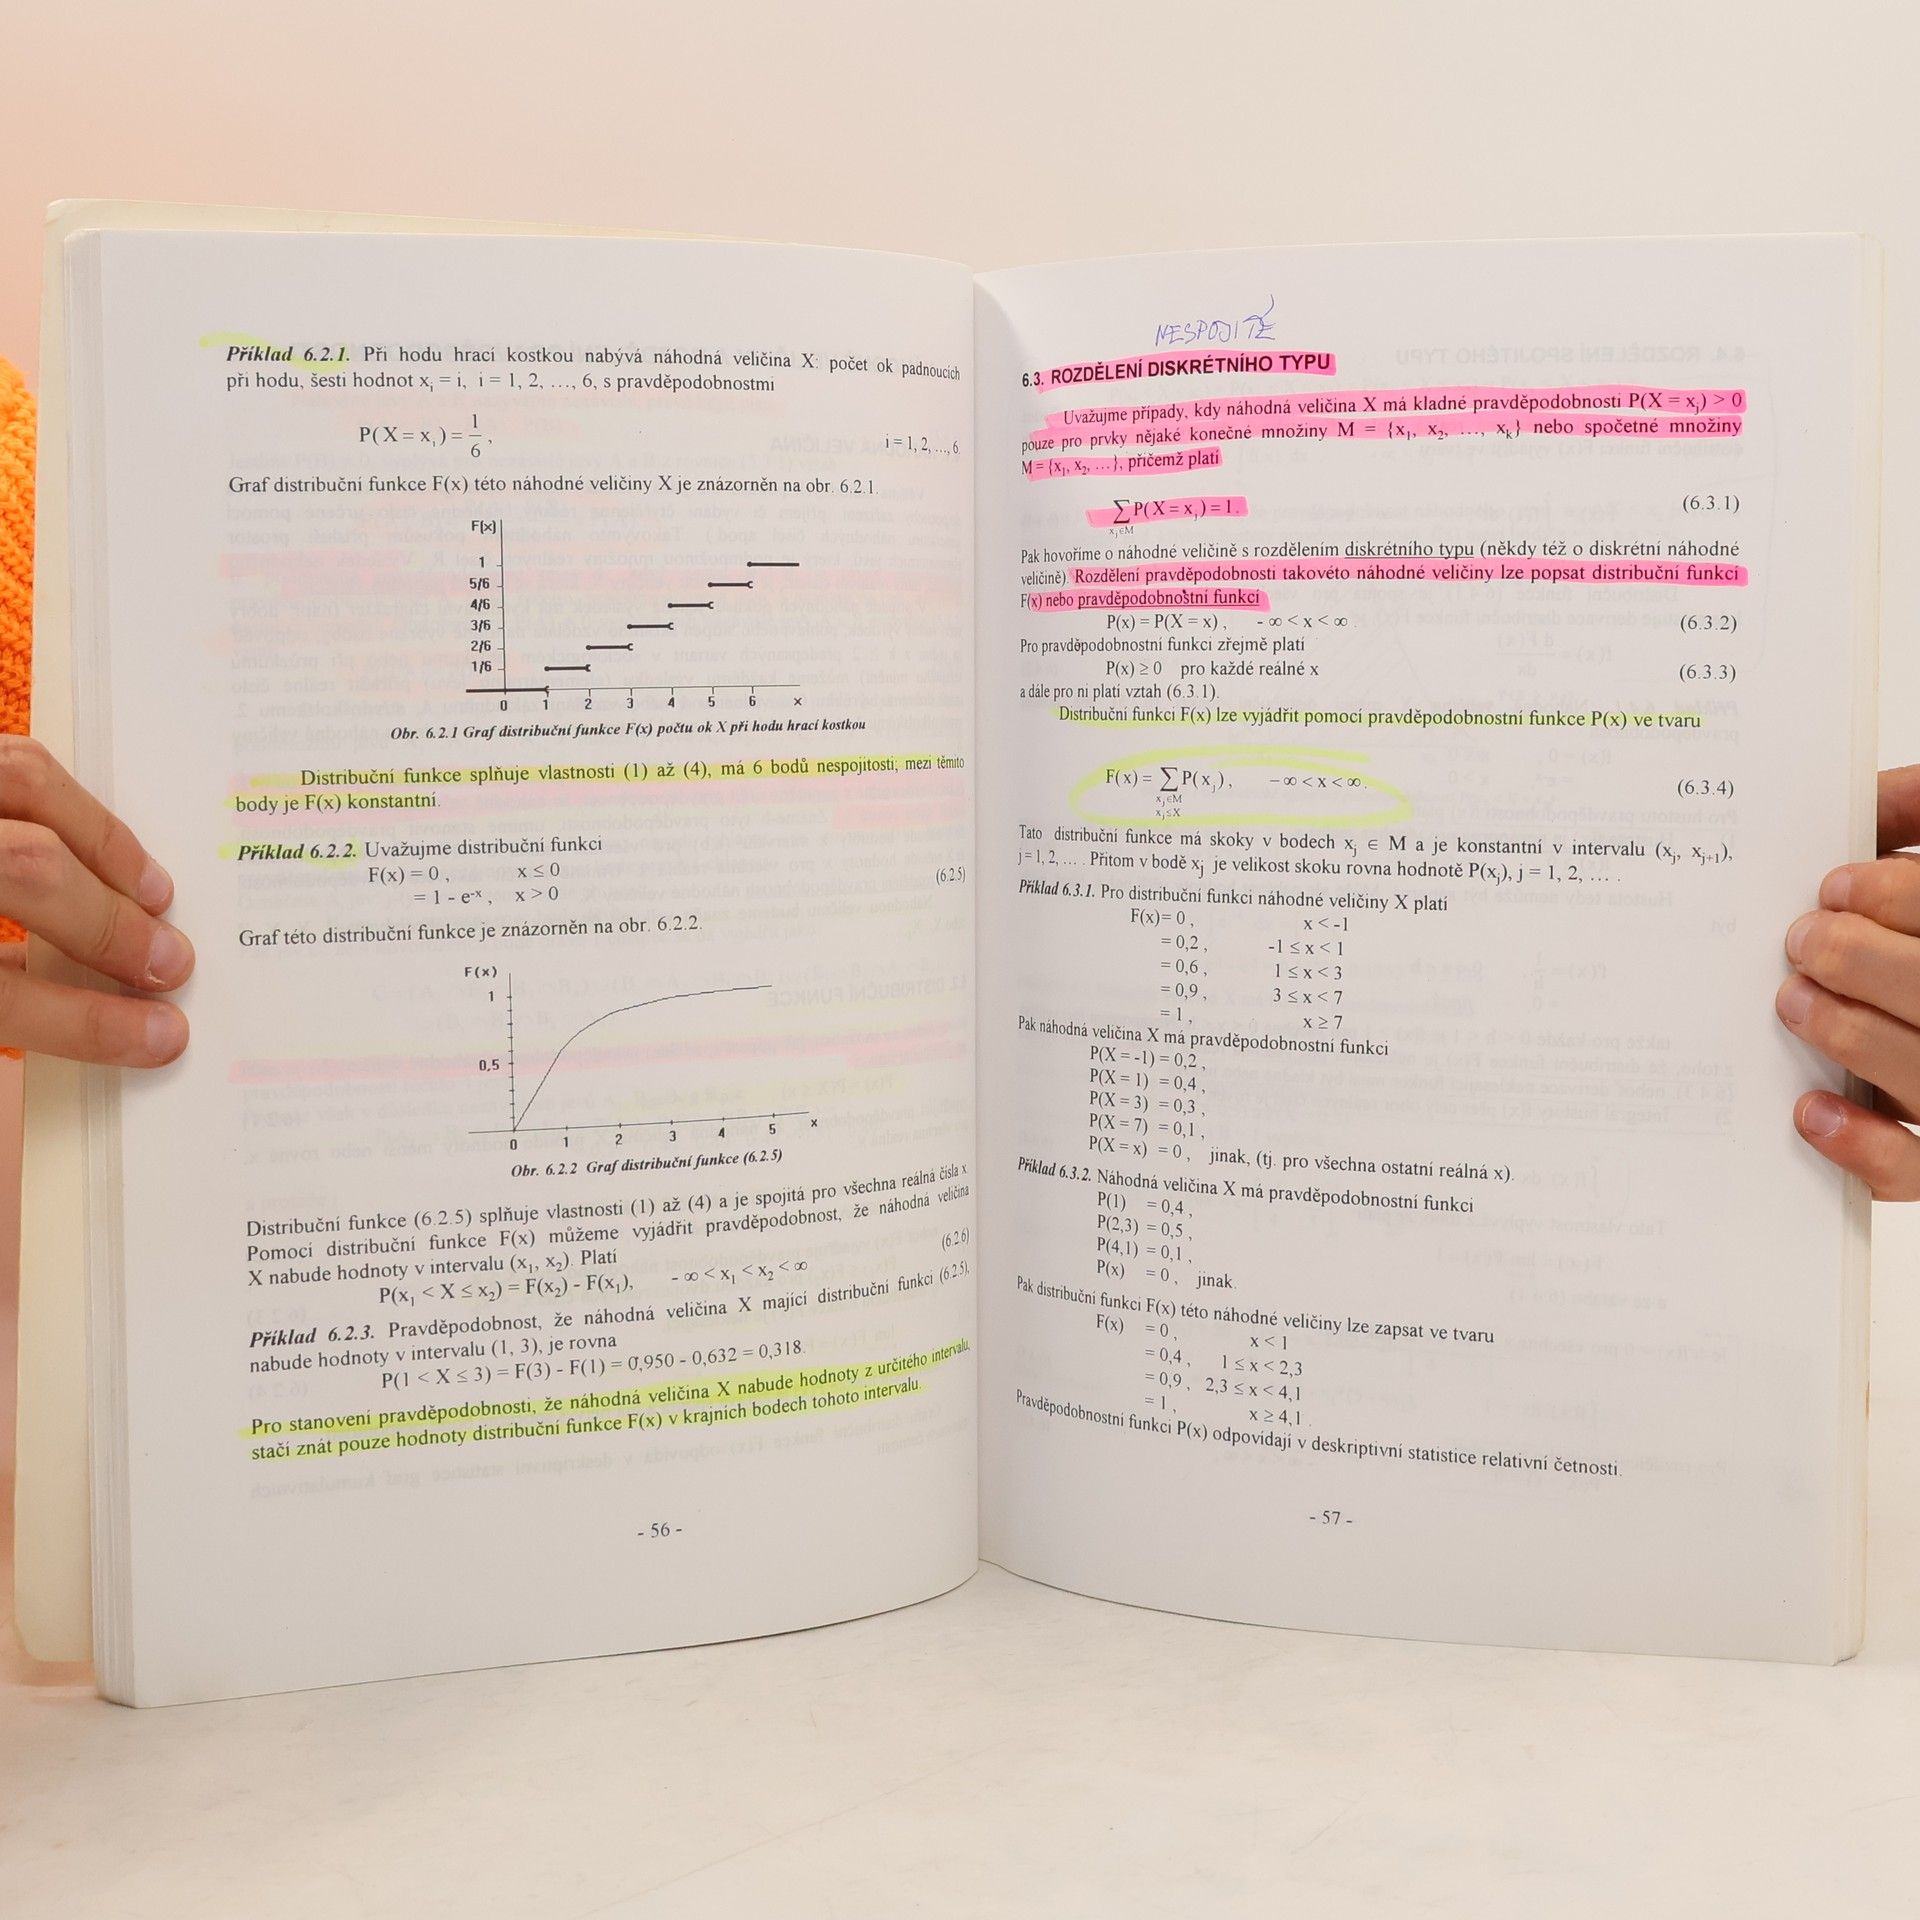 Příklad 6.2.1. Při hodu hrací kostkou nabývá náhodná veličina X: počet ok padnoucích
při hodu, šesti hodnot xᵢ = i, i = 1, 2, …, 6, s pravděpodobnostmi
P(X = xᵢ) = 1/6, i = 1, 2, ..., 6.
Graf distribuční funkce F(x) této náhodné veličiny X je znázorněn na obr. 6.2.1.
F(x)
1
5/6
4/6
3/6
2/6
1/6
0 1 2 3 4 5 6 x
Obr. 6.2.1 Graf distribuční funkce F(x) počtu ok X při hodu hrací kostkou
Distribuční funkce splňuje vlastnosti (1) až (4), má 6 bodů nespojitosti; mezi těmito
body je F(x) konstantní.
Příklad 6.2.2. Uvažujme distribuční funkci
F(x) = 0, x ≤ 0
= 1 - e⁻ˣ, x > 0 (6.2.5)
Graf této distribuční funkce je znázorněn na obr. 6.2.2.
F(x)
1
0,5
0 1 2 3 4 5 x
Obr. 6.2.2 Graf distribuční funkce (6.2.5)
Distribuční funkce (6.2.5) splňuje vlastnosti (1) až (4) a je spojitá pro všechna reálná čísla x.
Pomocí distribuční funkce F(x) můžeme vyjádřit pravděpodobnost, že náhodná veličina
X nabude hodnoty v intervalu (x₁, x₂). Platí
P(x₁ < X ≤ x₂) = F(x₂) - F(x₁), - ∞ < x₁ < x₂ < ∞ (6.2.6)
Příklad 6.2.3. Pravděpodobnost, že náhodná veličina X mající distribuční funkci (6.2.5),
nabude hodnoty v intervalu (1, 3), je rovna
P(1 < X ≤ 3) = F(3) - F(1) = 0,950 - 0,632 = 0,318.
Pro stanovení pravděpodobnosti, že náhodná veličina X nabude hodnoty z určitého intervalu,
stačí znát pouze hodnoty distribuční funkce F(x) v krajních bodech tohoto intervalu.
- 56 -
NESPOJITÉ
6.3. ROZDĚLENÍ DISKRÉTNÍHO TYPU
Uvažujme případy, kdy náhodná veličina X má kladné pravděpodobnosti P(X = xⱼ) > 0
pouze pro prvky nějaké konečné množiny M = {x₁, x₂, …, xₖ} nebo spočetné množiny
M = {x₁, x₂, …}, přičemž platí
∑P(X = xⱼ) = 1. (6.3.1)
xⱼ∈M
Pak hovoříme o náhodné veličině s rozdělením diskrétního typu (někdy též o diskrétní náhodné
veličině). Rozdělení pravděpodobnosti takovéto náhodné veličiny lze popsat distribuční funkcí
F(x) nebo pravděpodobnostní funkcí
P(x) = P(X = x), - ∞ < x < ∞. (6.3.2)
Pro pravděpodobnostní funkci zřejmě platí
P(x) ≥ 0 pro každé reálné x (6.3.3)
a dále pro ni platí vztah (6.3.1).
Distribuční funkci F(x) lze vyjádřit pomocí pravděpodobnostní funkce P(x) ve tvaru
F(x) = ∑P(xⱼ), - ∞ < x < ∞. (6.3.4)
xⱼ∈M
xⱼ≤X
Tato distribuční funkce má skoky v bodech xⱼ ∈ M a je konstantní v intervalu (xⱼ, xⱼ₊₁),
j = 1, 2, … . Přitom v bodě xⱼ je velikost skoku rovna hodnotě P(xⱼ), j = 1, 2, … .
Příklad 6.3.1. Pro distribuční funkci náhodné veličiny X platí
F(x)= 0, x < -1
= 0,2, -1 ≤ x < 1
= 0,6, 1 ≤ x < 3
= 0,9, 3 ≤ x < 7
= 1, x ≥ 7
Pak náhodná veličina X má pravděpodobnostní funkci
P(X = -1) = 0,2,
P(X = 1) = 0,4,
P(X = 3) = 0,3,
P(X = 7) = 0,1,
P(X = x) = 0, jinak, (tj. pro všechna ostatní reálná x).
Příklad 6.3.2. Náhodná veličina X má pravděpodobnostní funkci
P(1) = 0,4,
P(2,3) = 0,5,
P(4,1) = 0,1,
P(x) = 0, jinak.
Pak distribuční funkci F(x) této náhodné veličiny lze zapsat ve tvaru
F(x) = 0, x < 1
= 0,4, 1 ≤ x < 2,3
= 0,9, 2,3 ≤ x < 4,1
= 1, x ≥ 4,1.
Pravděpodobnostní funkci P(x) odpovídají v deskriptivní statistice relativní četnosti.
- 57 -